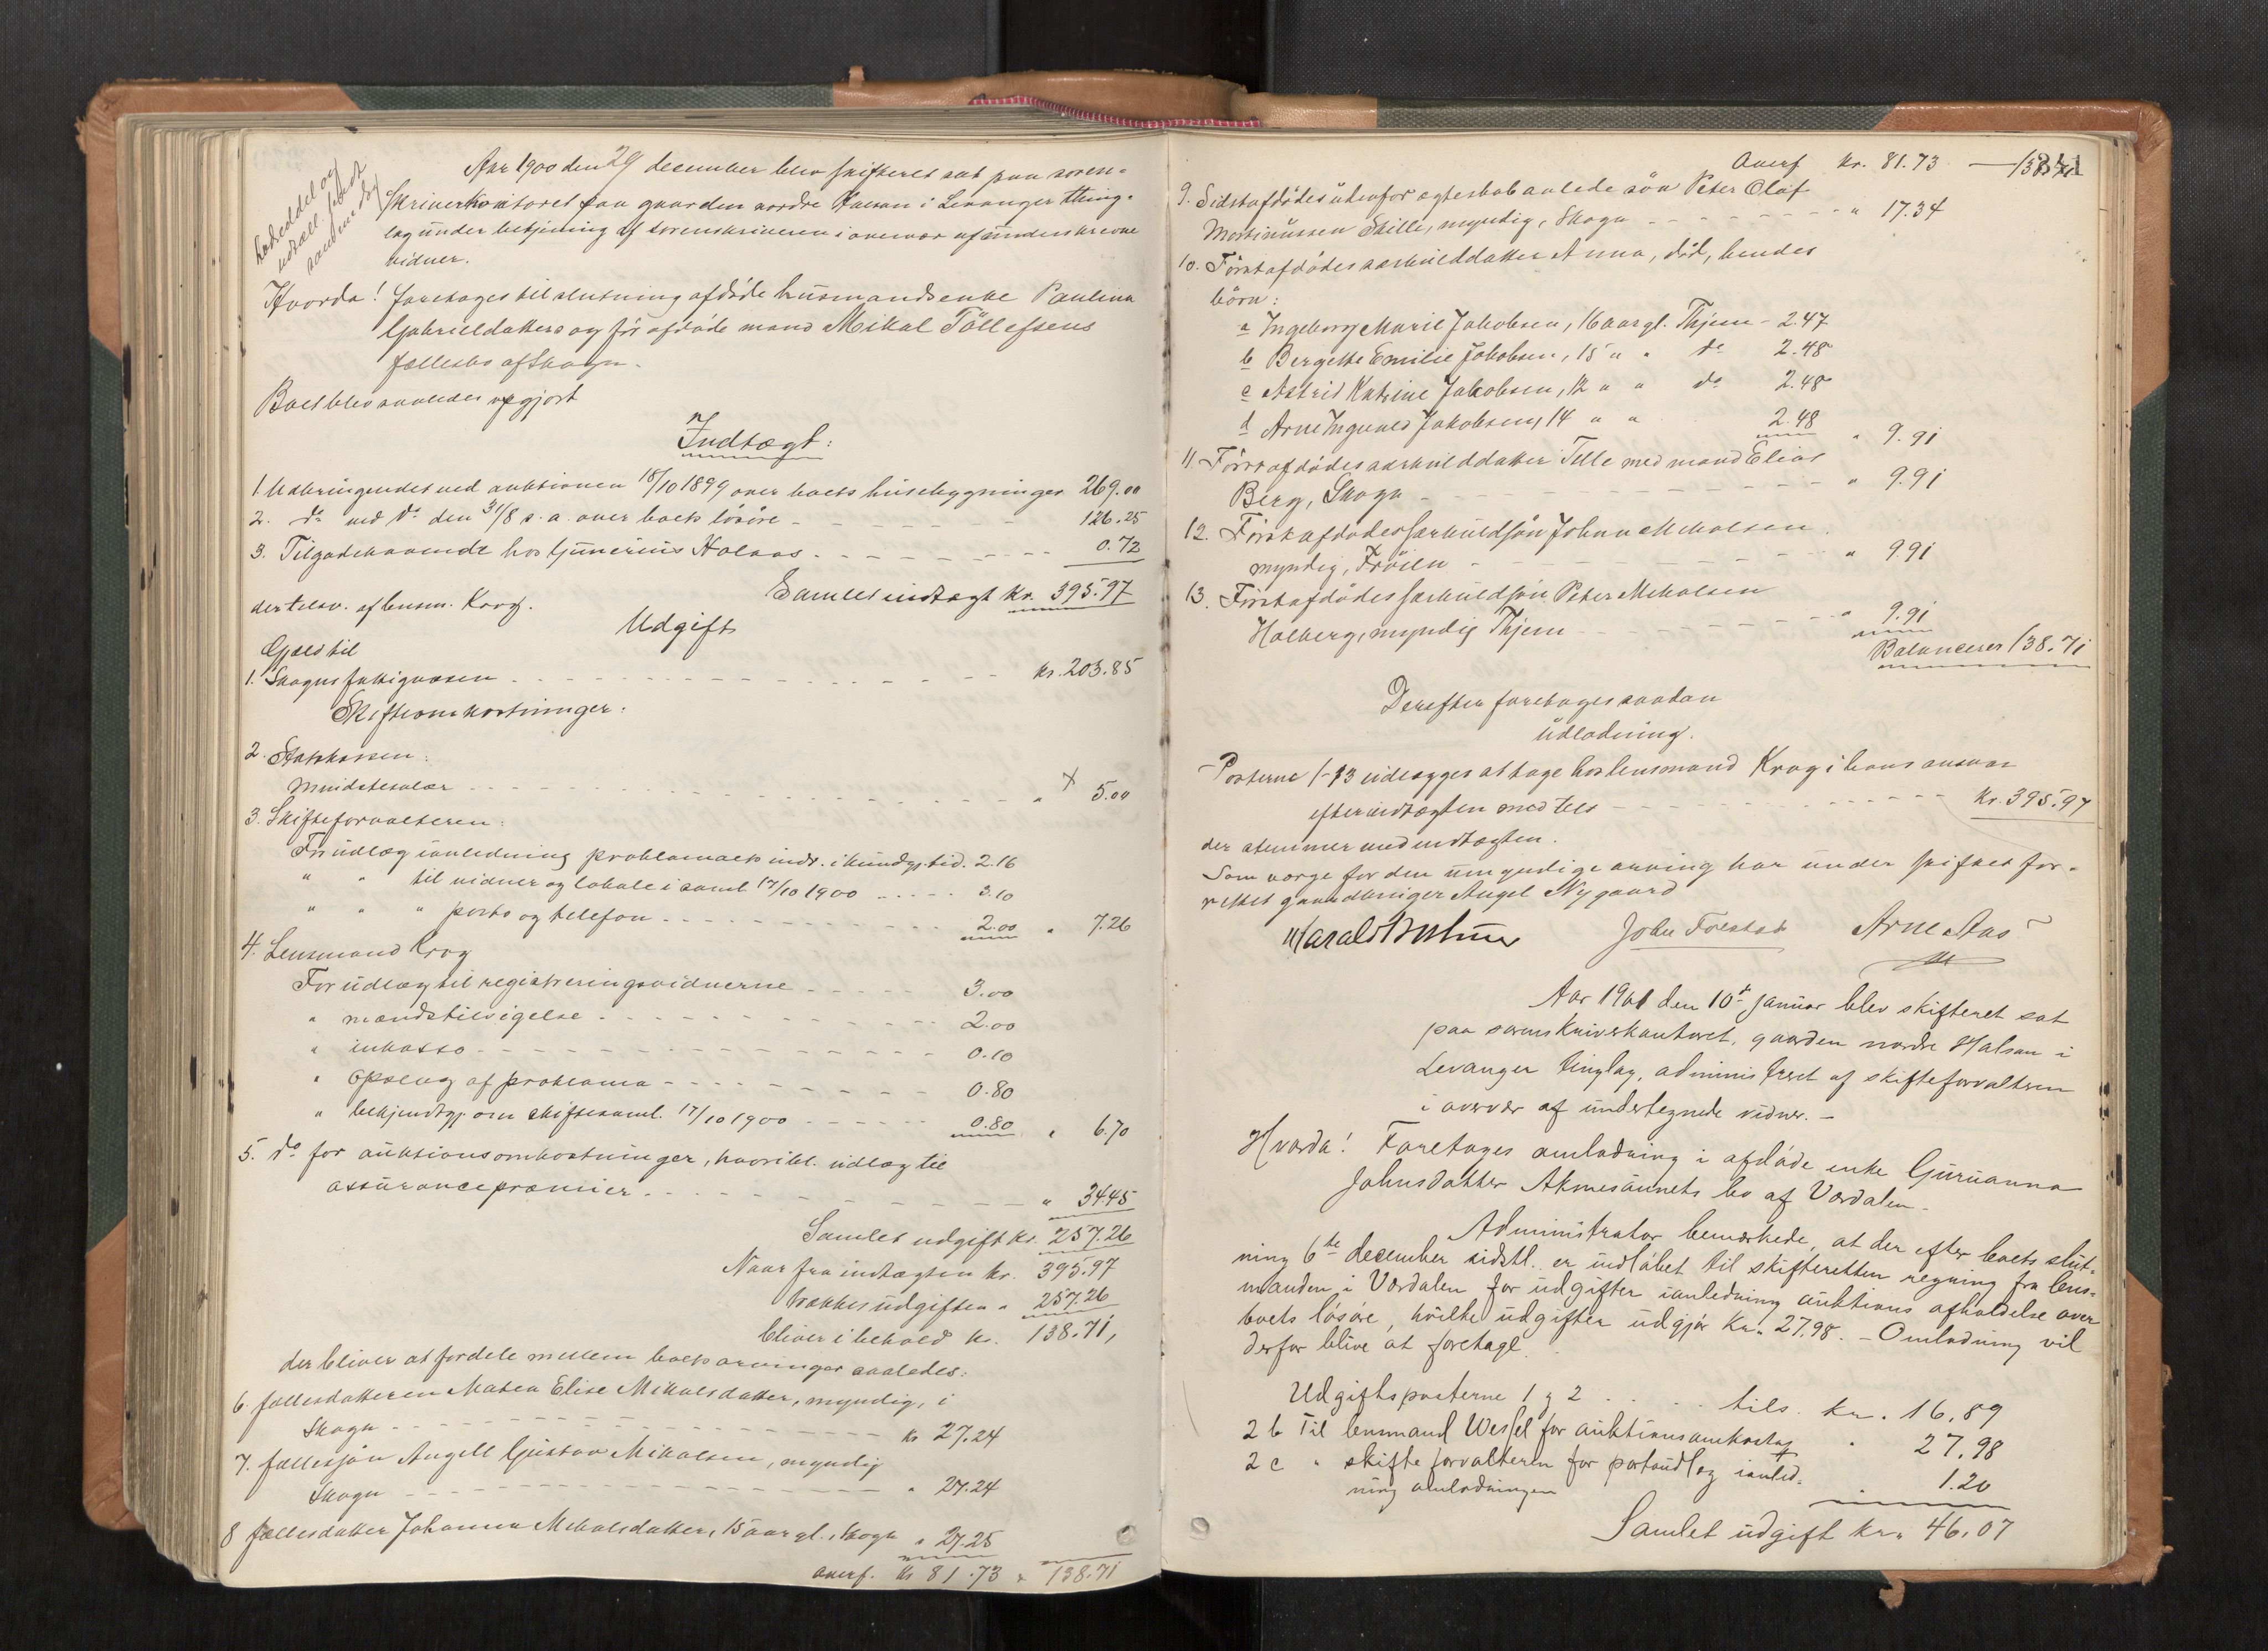 Aar 1900 den 29 december blev skifteret sat paa soren-
skriverkontoret paa gaarden nordre Halsan i Levanger thing-
lag under betjening af sorenskriveren i overvær af underskrevne
vidner.
Hvorda! foretoges til slutning afdöde husmandsenke Paulina
Gabrielsdatters og för afdöde mand Mikal Töllefsens
fællesbo af Skogn.
Boet blev saaledes opgjort
Indtægt:
1. Udbringendet ved auktionen 18/10 1899 over boets husebygninger 269.00
2. do ved do den 31/8 s. a. over boets lösöre - 126.25
3. Tilgodehavende hos Junerius Holaas - 0.72
Samlet indtægt Kr. 395.97
der tilsv. af lensm. Krog.
Udgift
Gjeld til
1. Skogns fattigvæsen - kr. 203.85
Skifteomkostninger:
2. Statskassen:
Mindstesalær - " 5.00
3. Skifteforvalteren:
For udlæg i anledning proklamaets indr. i kundgj. tid. 2.16
" " til vidner og lokale i saml. 17/10 1900 - 3.10
" " " porto og telefon - 2.00 " 7.26
4. Lensmand Krog
For udlæg til registreringsvidnerne - 3.00
" mændstilsigelse - 2.00
" inkasso - 0.10
" opslag af proklama - 0.80
" bekjendtgj. om skiftesaml. 17/10 1900 - 0.80 " 6.70
5. do for auktionsomkostninger, hvori bl. udlæg til
assurancepræmier - " 34.45
Samlet udgift kr. 257.26
Naar fra indtægten kr. 395.97
trækkes udgiften " 257.26
bliver i behold kr. 138.71,
der bliver at fordele mellem boets arvinger saaledes:
6. fællesdatteren Matea Elise Mikalsdatter, myndig, i
Skogn - kr 27.24
7. fællessön Angell Gustav Mikalsen, myndig
Skogn - " 27.24
8 fællesdatter Johanna Mikalsdatter, 15 aar gl., Skogn " 27.25
overf. Kr 81.73 " 138.71
Overf kr. 81.73 — 138.71
9. Sidstafdödes udenfor ægteskab avlede sön Peter Olaf
Martinussen Skille, myndig, Skogn - " 17.34
10. Förstafdödes særkulddatter Anna, död, hendes
börn:
a Ingeborg Marie Jakobsen, 16 aar gl. Thjem - 2.47
b Bergitte Emilie Jakobsen, 15 " " do 2.48
c Astrid Katrine Jakobsen, 12 " " do 2.48
d Arne Ingvald Jakobsen, 14 " " 2.48 " 9.91
11. Förstafdödes særkulddatter Tille med mand Elias
Berg, Skogn - " 9.91
12. Förstafdödes særkuldsön Johan Mikalsen
myndig, Fröien - " 9.91
13. Förstafdödes særkuldsön Peter Mikalsen
Halberg, myndig Thjem - " 9.91
Balancerer 138.71
Derefter foretoges saadan
udlodning.
Posterne 1-13 udlægges at tage hos lensmand Krog i hans ansvar
efter indtægten med tils - kr. 395.97
der stemmer med indtægten.
Som værge for den umyndige arving har under skiftet for-
rettet gaardbruger Angel Nygaard
John Forestad Arne Aas
Aar 1901 den 10de januar blev skifteret sat
paa sorenskriverkontoret, gaarden nordre Halsan i
Levanger tinglag, administreret af skifteforvalteren
i overvær af undertegnede vidner. -
Hvorda! Foretoges omlodning i afdöde enke Guruanna
Johnsdatter Akmesaunets bo af Værdalen.
Administrator bemærkede, at der efter boets slut-
ning 6te december sidstl. er indlöbet til skifteretten regning fra lens-
manden i Værdalen for udgifter i anledning auktions afholdelse over
boets lösöre, hvilke udgifter udgjör Kr. 27.98. - Omlodning vil
derfor blive at foretage.
Udgiftsposterne 1 og 2 . . . . tils. kr. 16,89
2 b Til lensmand Wessel for auktionsomkostng " 27,98
2 c " skifteforvalteren for portoudlæg i anled-
ning omlodningen " 1.20
Samlet udgift kr. 46,07